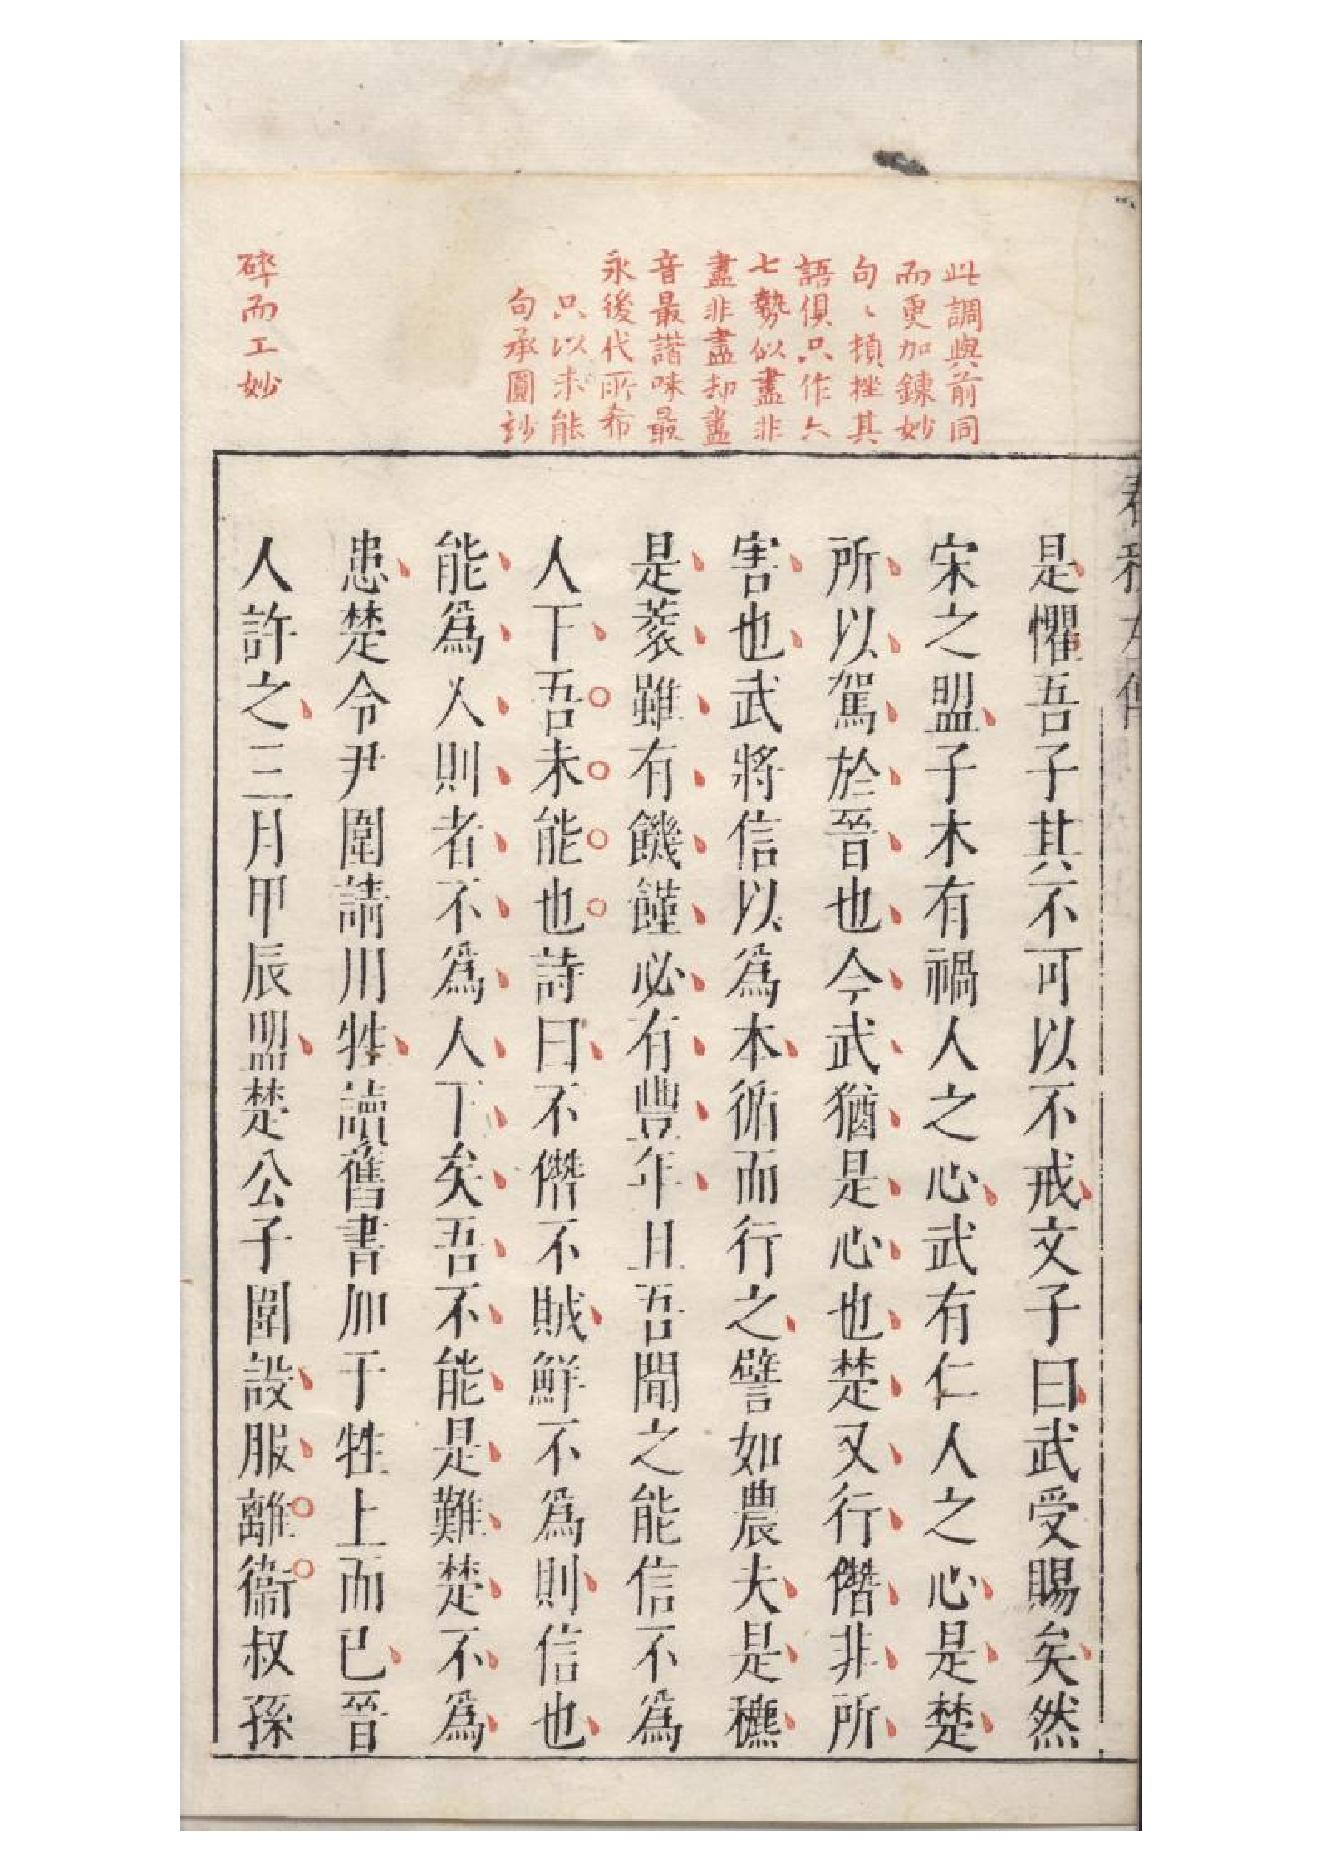 此調與前同
而更加鍊妙
句〻損挫其
語俱只作六
七勢似盡非
盡非盡却盡
音最諧味最
永後代所希
只以未能
句承圓妙
碎而工妙
春秋左傳
是懼吾子其不可以不戒文子曰武受賜矣然
宋之盟子木有禍人之心武有仁人之心是楚
所以駕於晉也今武猶是心也楚又行僭非所
害也武將信以為本循而行之譬如農夫是穮
是蔉雖有饑饉必有豐年且吾聞之能信不為
人下吾未能也詩曰不僭不賊鮮不為則信也
能為人則者不為人下矣吾不能是難楚不為
患楚令尹圍請用牲讀舊書加于牲上而已晉
人許之三月甲辰盟楚公子圍設服離衞叔孫